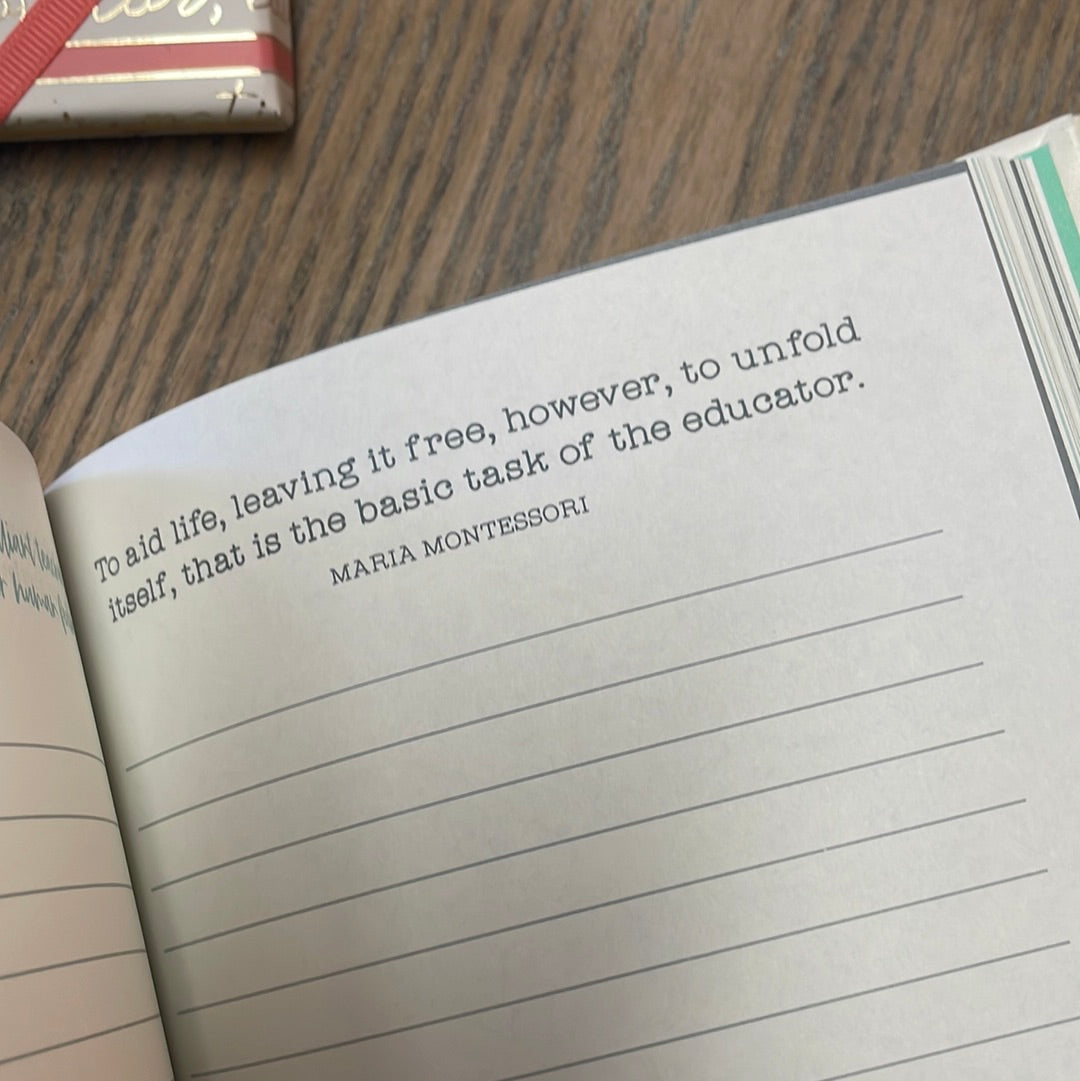 To aid life, leaving it free, however, to unfold
itself, that is the basic task of the educator.
MARIA MONTESSORI